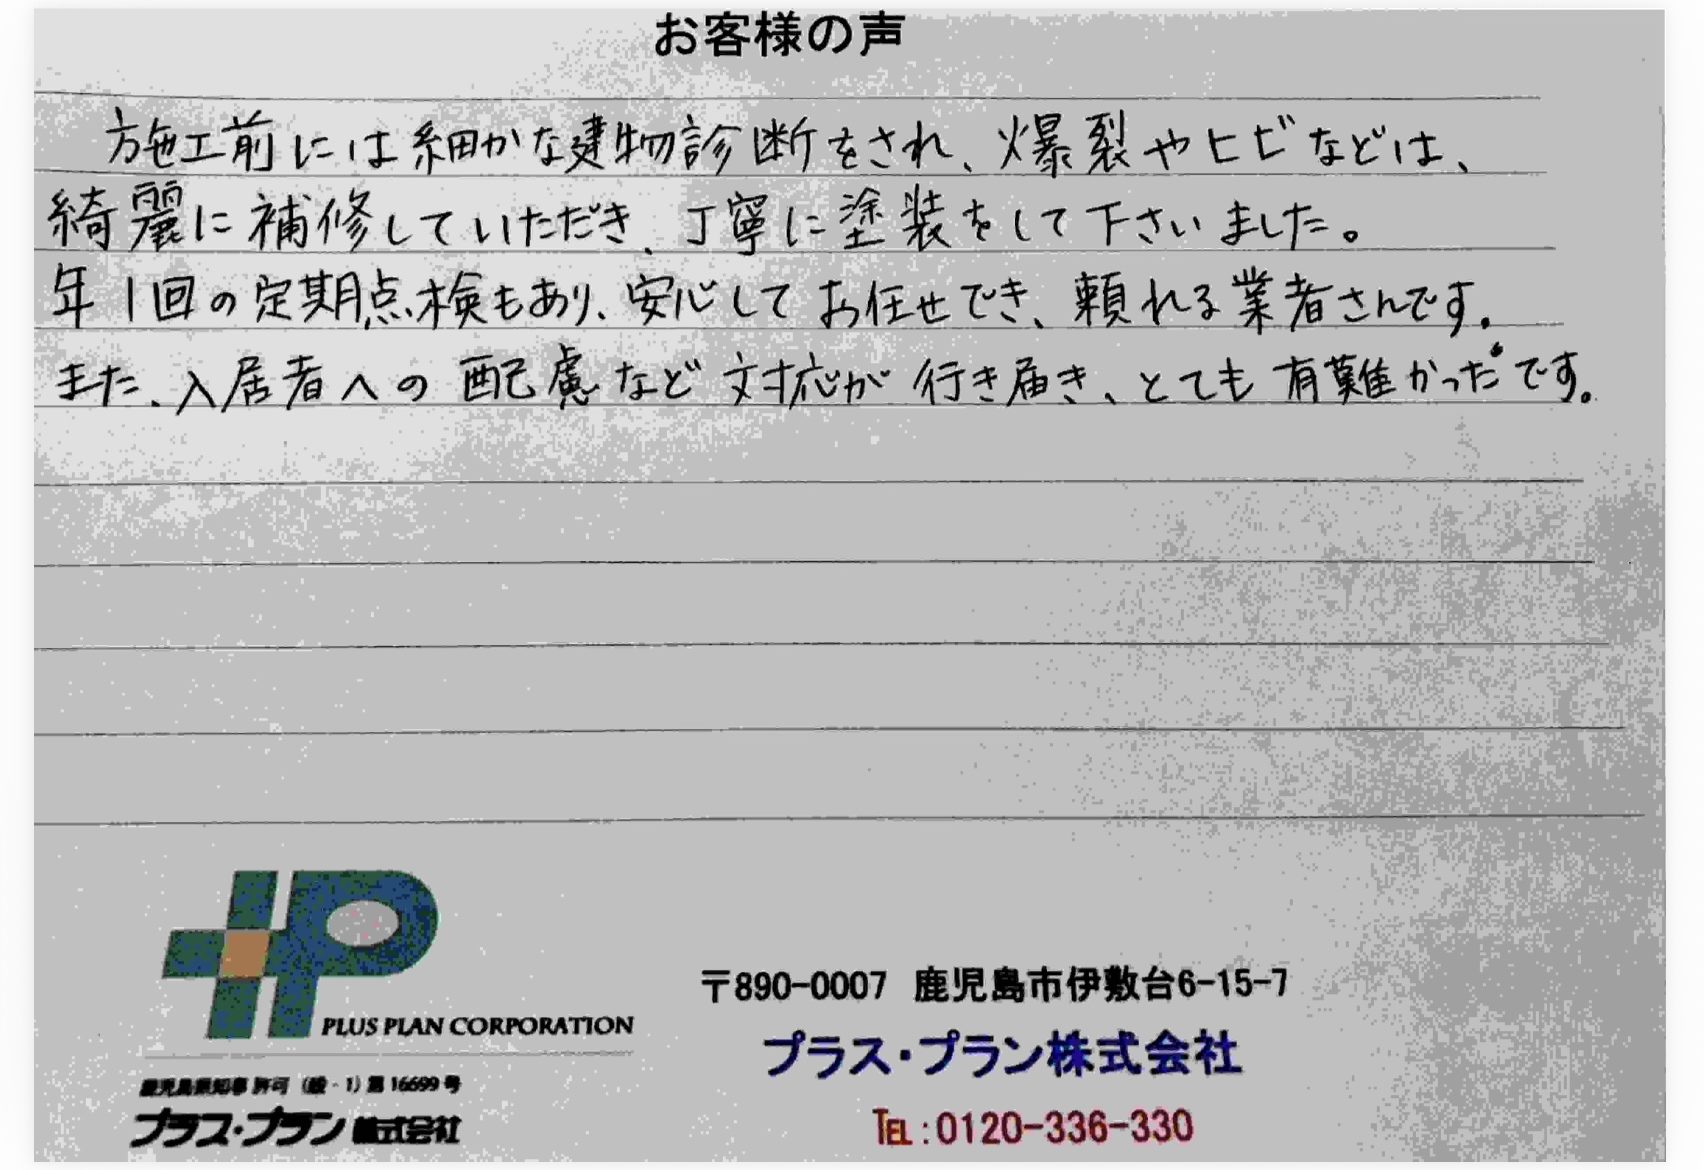 お客様の声
施工前には細かな建物診断をされ、爆裂やヒビなどは、
綺麗に補修していただき、丁寧に塗装をして下さいました。
年1回の定期点検もあり、安心してお任せでき、頼れる業者さんです。
また、入居者への配慮など対応が行き届き、とても有難かったです。
PLUS PLAN CORPORATION
鹿児島県知事 許可 (般-1) 第16699号
プラス・プラン株式会社
〒890-0007 鹿児島市伊敷台6-15-7
プラス・プラン株式会社
TEL:0120-336-330